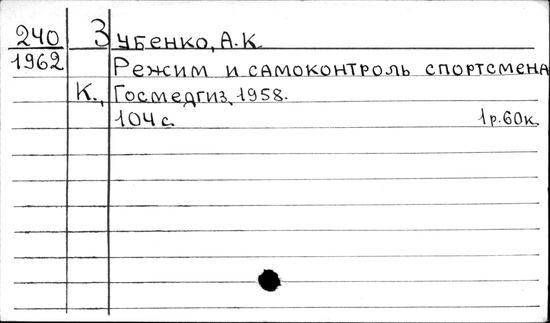 240 Зубенко, А.К.
1962 Режим и самоконтроль спортсмена
К., Госмедгиз, 1958.
104 с. 1р.60к.